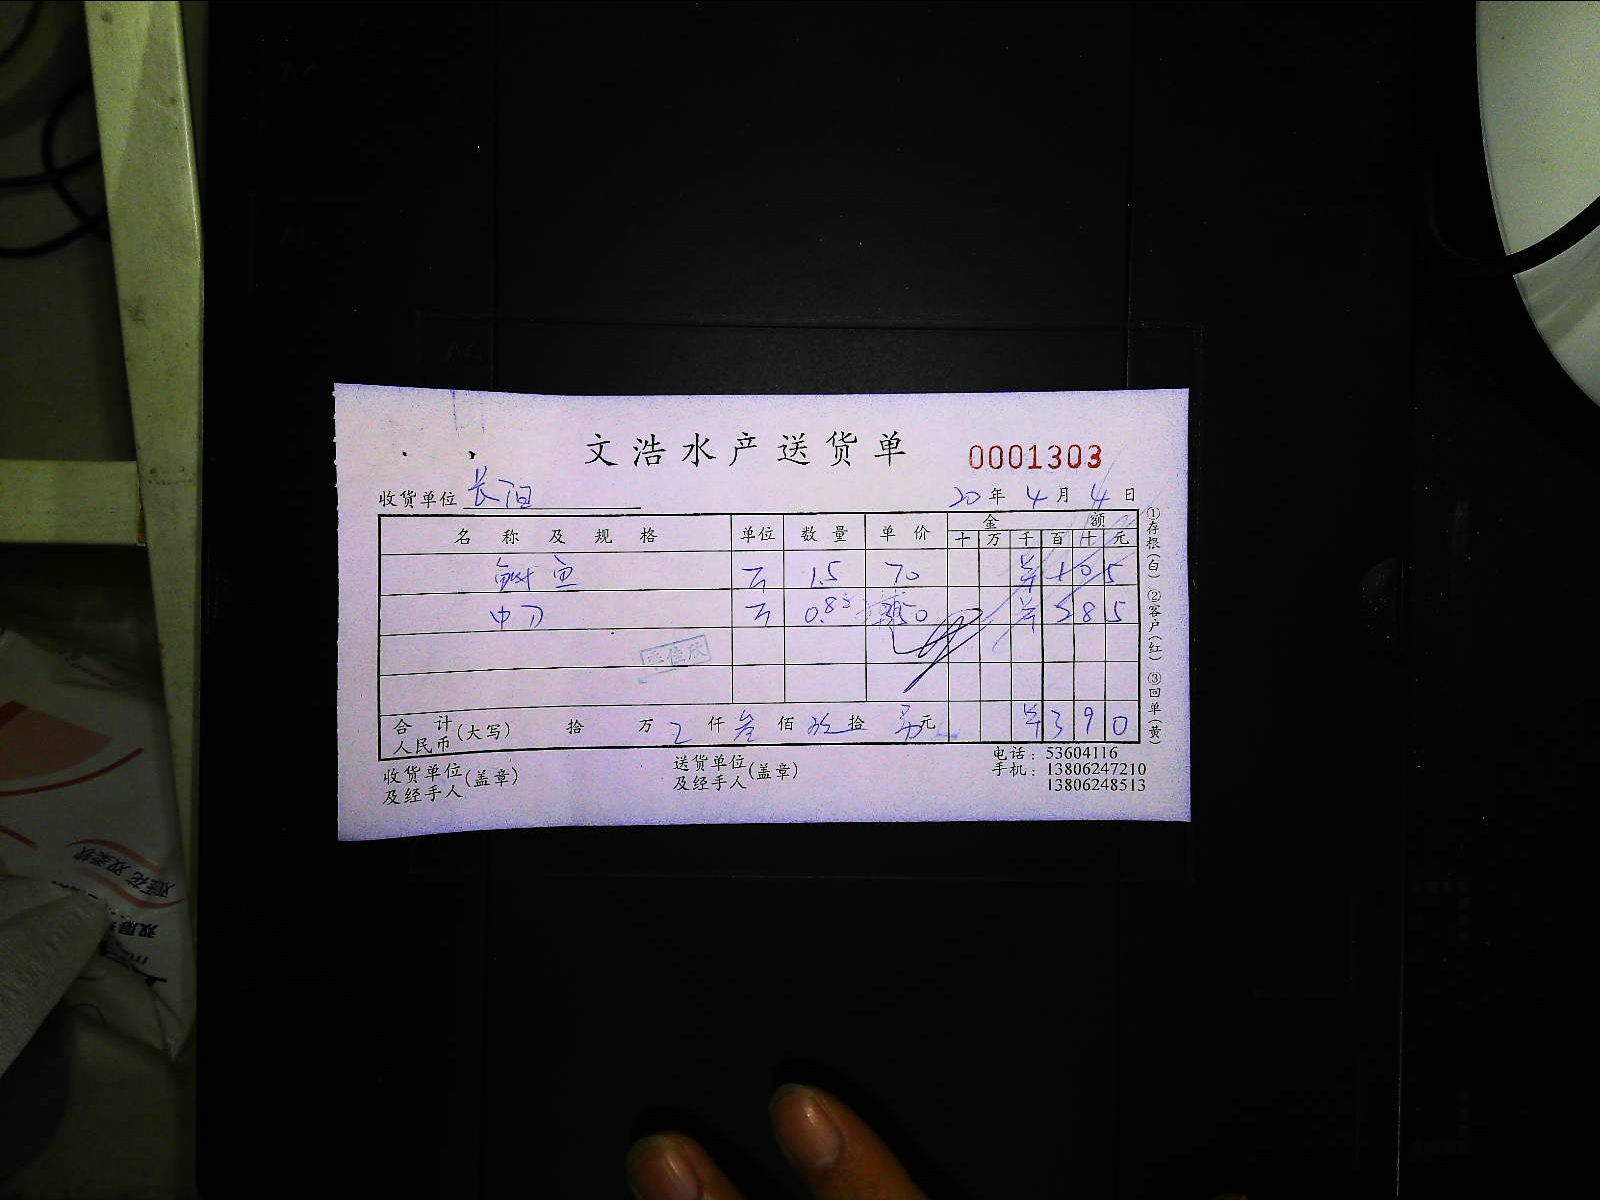 文浩水产送货单 0001303
收货单位 长江 20 年 4 月 4 日
名称及规格 单位 数量 单价 金额
十 万 千 百 十 元
鱼 1.5 70 105
中刀 0.82 50 285
李佳欣
合计人民币(大写) 拾 万 仟 叁 佰 玖 拾 元 390
收货单位及经手人(盖章) 送货单位及经手人(盖章)
电话：53604116
手机：13806247210
13806248513
①存根(白) ②客户(红) ③回单(黄)
双柔软